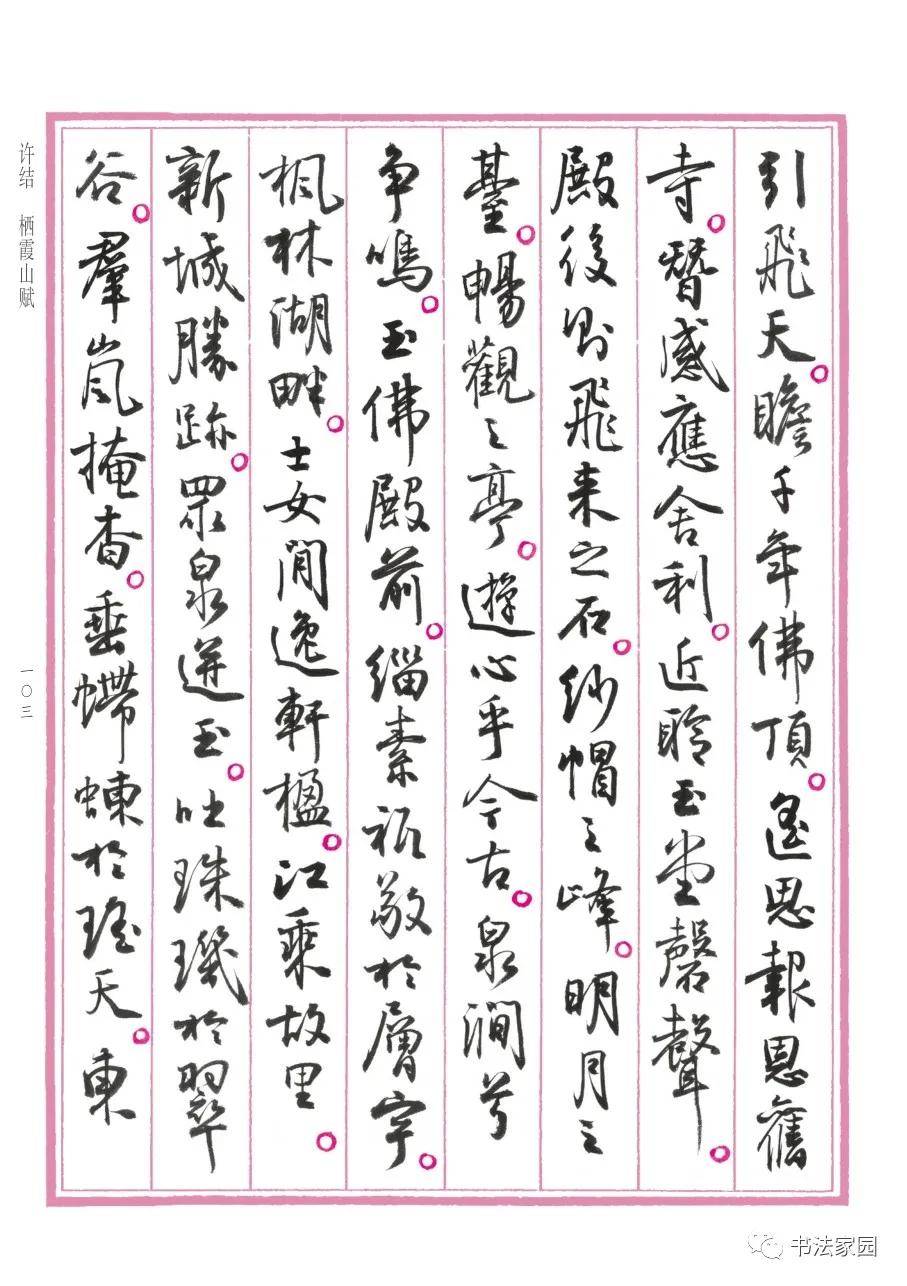 引飛天。瞻千年佛頂。遥思報恩舊
寺。暫感應舍利。近聆玉堂磬聲。
殿後則飛来之石。紗帽之峰。明月之
臺。暢觀之亭。遊心乎今古。泉澗兮
争鳴。玉佛殿前。緇素祗敬於層宇。
楓林湖畔。士女閒逸軒楹。江乘故里。
新城勝跡。眾泉迸玉。吐珠璣於翠
谷。羣嵐掩杳。垂螮蝀於瑶天。東
许结 栖霞山赋
一〇三
书法家园